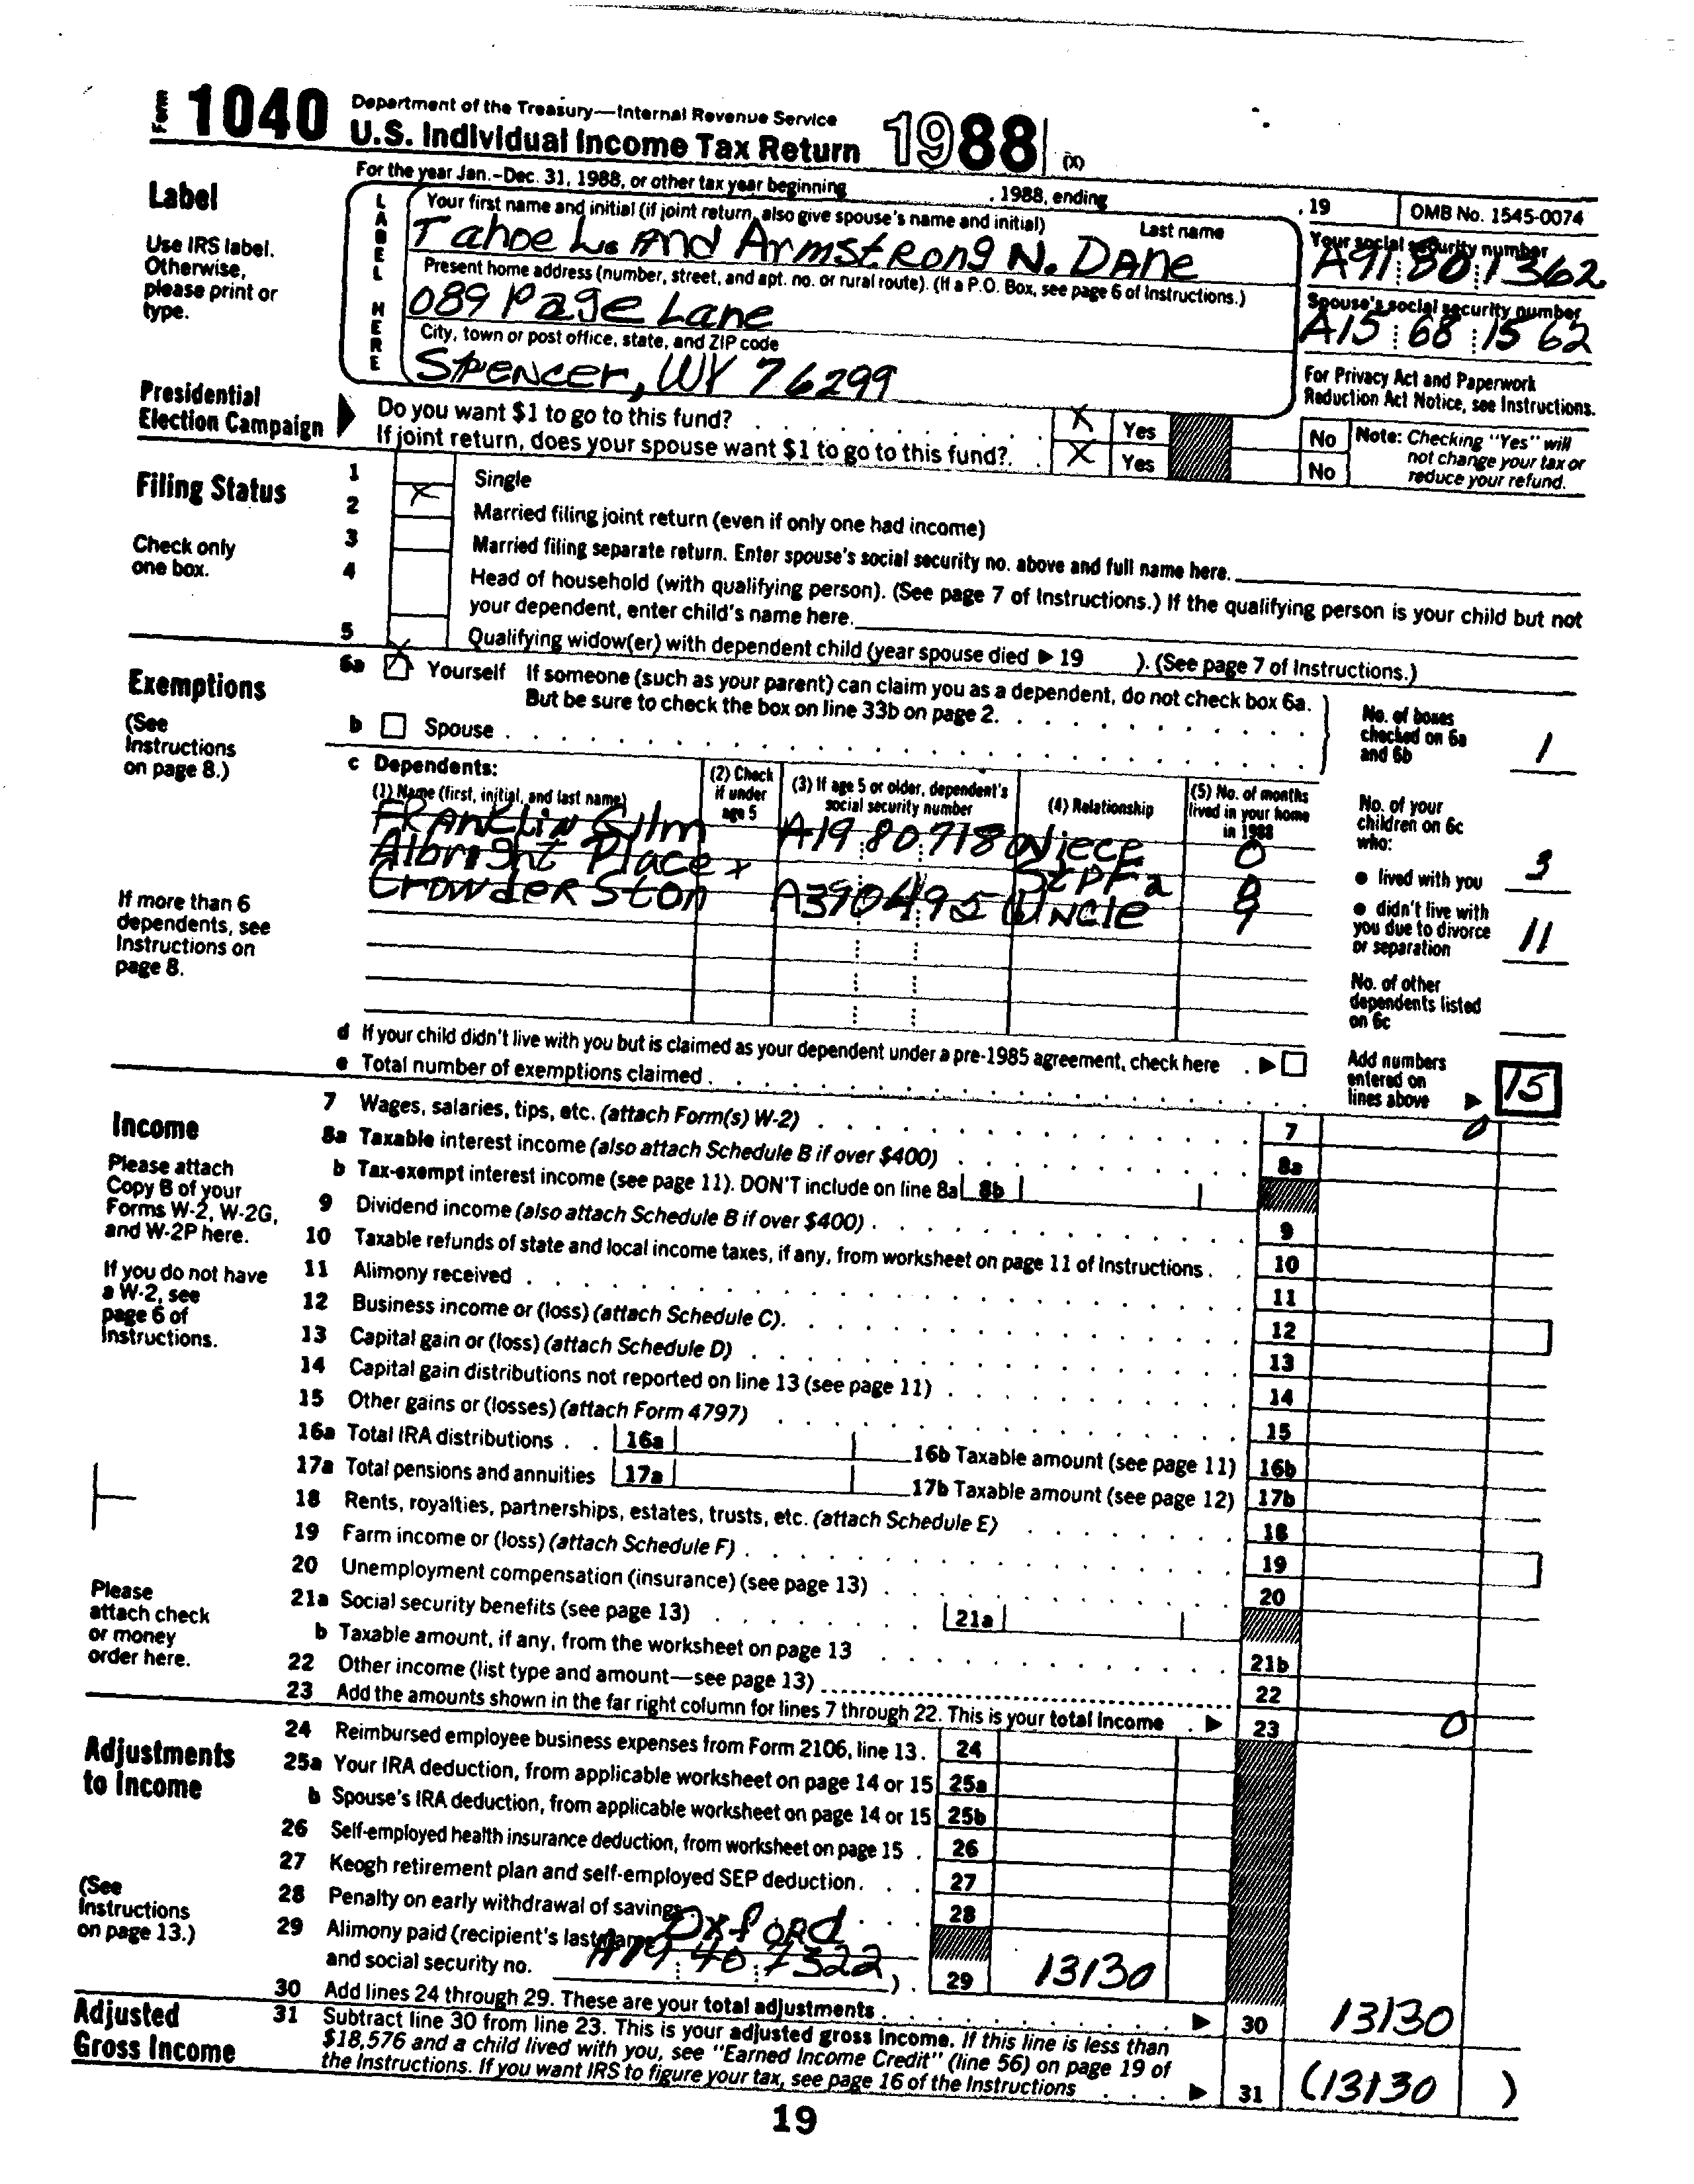 Form 1040 Department of the Treasury—Internal Revenue Service
U.S. Individual Income Tax Return 1988 (X)
For the year Jan.–Dec. 31, 1988, or other tax year beginning , 1988, ending , 19 OMB No. 1545-0074
Label
Use IRS label.
Otherwise,
please print or
type.
LABEL HERE
Your first name and initial (if joint return, also give spouse's name and initial) Last name
Tahoe L. AND ArmstRong N. DAne
Your social security number
A91 80 1362
Present home address (number, street, and apt. no. or rural route). (If a P.O. Box, see page 6 of Instructions.)
089 Page Lane
Spouse's social security number
A15 68 1562
City, town or post office, state, and ZIP code
SPENCer, WY 76299
For Privacy Act and Paperwork
Reduction Act Notice, see Instructions.
Presidential
Election Campaign
Do you want $1 to go to this fund? X Yes No
If joint return, does your spouse want $1 to go to this fund? X Yes No
Note: Checking "Yes" will
not change your tax or
reduce your refund.
Filing Status
Check only
one box.
1 Single
2 X Married filing joint return (even if only one had income)
3 Married filing separate return. Enter spouse's social security no. above and full name here.
4 Head of household (with qualifying person). (See page 7 of Instructions.) If the qualifying person is your child but not
your dependent, enter child's name here.
5 Qualifying widow(er) with dependent child (year spouse died ▶ 19 ). (See page 7 of Instructions.)
Exemptions
(See
Instructions
on page 8.)
6a X Yourself If someone (such as your parent) can claim you as a dependent, do not check box 6a.
But be sure to check the box on line 33b on page 2.
b Spouse
No. of boxes
checked on 6a
and 6b 1
c Dependents:
(1) Name (first, initial, and last name)
(2) Check
if under
age 5
(3) If age 5 or older, dependent's
social security number
(4) Relationship
(5) No. of months
lived in your home
in 1988
FRANKLIN Gilm A19 80 7180 Niece 0
Albright Place x StPFa 8
Crowder Ston A39 04 95 UNCle 9
If more than 6
dependents, see
Instructions on
page 8.
No. of your
children on 6c
who:
● lived with you 3
● didn't live with
you due to divorce
or separation 11
No. of other
dependents listed
on 6c
d If your child didn't live with you but is claimed as your dependent under a pre-1985 agreement, check here ▶
e Total number of exemptions claimed
Add numbers
entered on
lines above ▶ 15
Income
Please attach
Copy B of your
Forms W-2, W-2G,
and W-2P here.
If you do not have
a W-2, see
page 6 of
Instructions.
Please
attach check
or money
order here.
7 Wages, salaries, tips, etc. (attach Form(s) W-2) 7 0
8a Taxable interest income (also attach Schedule B if over $400) 8a
b Tax-exempt interest income (see page 11). DON'T include on line 8a 8b
9 Dividend income (also attach Schedule B if over $400) 9
10 Taxable refunds of state and local income taxes, if any, from worksheet on page 11 of Instructions 10
11 Alimony received 11
12 Business income or (loss) (attach Schedule C) 12
13 Capital gain or (loss) (attach Schedule D) 13
14 Capital gain distributions not reported on line 13 (see page 11) 14
15 Other gains or (losses) (attach Form 4797) 15
16a Total IRA distributions 16a 16b Taxable amount (see page 11) 16b
17a Total pensions and annuities 17a 17b Taxable amount (see page 12) 17b
18 Rents, royalties, partnerships, estates, trusts, etc. (attach Schedule E) 18
19 Farm income or (loss) (attach Schedule F) 19
20 Unemployment compensation (insurance) (see page 13) 20
21a Social security benefits (see page 13) 21a
b Taxable amount, if any, from the worksheet on page 13 21b
22 Other income (list type and amount—see page 13) 22
23 Add the amounts shown in the far right column for lines 7 through 22. This is your total income ▶ 23 0
Adjustments
to Income
(See
Instructions
on page 13.)
24 Reimbursed employee business expenses from Form 2106, line 13 24
25a Your IRA deduction, from applicable worksheet on page 14 or 15 25a
b Spouse's IRA deduction, from applicable worksheet on page 14 or 15 25b
26 Self-employed health insurance deduction, from worksheet on page 15 26
27 Keogh retirement plan and self-employed SEP deduction 27
28 Penalty on early withdrawal of savings 28
29 Alimony paid (recipient's last name OxfoRd
and social security no. 40 7322 ) 29 13130
30 Add lines 24 through 29. These are your total adjustments ▶ 30 13130
Adjusted
Gross Income
31 Subtract line 30 from line 23. This is your adjusted gross income. If this line is less than
$18,576 and a child lived with you, see "Earned Income Credit" (line 56) on page 19 of
the Instructions. If you want IRS to figure your tax, see page 16 of the Instructions ▶ 31 (13130 )
19